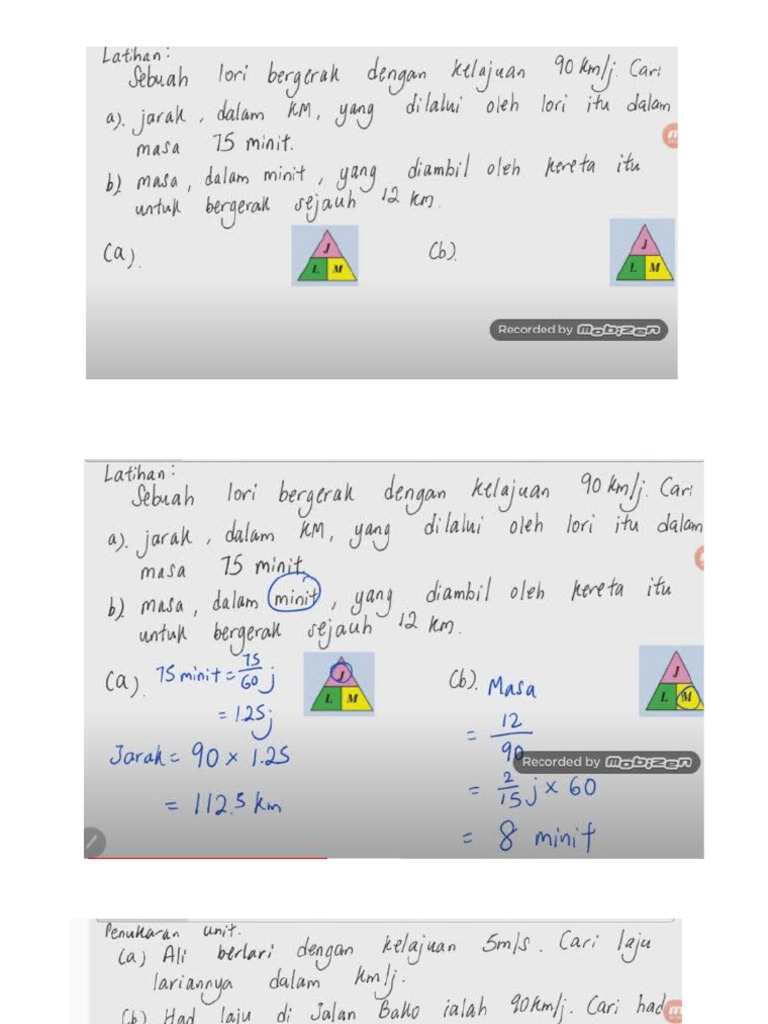 Latihan:
Sebuah lori bergerak dengan kelajuan 90 km/j. Cari
a). jarak, dalam KM, yang dilalui oleh lori itu dalam
masa 75 minit.
b) masa, dalam minit, yang diambil oleh kereta itu
untuk bergerak sejauh 12 km.
(a).
J
L M
(b).
J
L M
Recorded by mobizen
Latihan:
Sebuah lori bergerak dengan kelajuan 90 km/j. Cari
a). jarak, dalam KM, yang dilalui oleh lori itu dalam
masa 75 minit.
b) masa, dalam minit, yang diambil oleh kereta itu
untuk bergerak sejauh 12 km.
(a). 75 minit = 75/60 j
= 1.25j
Jarak = 90 × 1.25
= 112.5 km
J
L M
(b). Masa
= 12/90
= 2/15 j × 60
= 8 minit
J
L M
Recorded by mobizen
Penukaran unit.
(a) Ali berlari dengan kelajuan 5m/s. Cari laju
lariannya dalam km/j.
(b) Had laju di Jalan Bako ialah 90km/j. Cari had